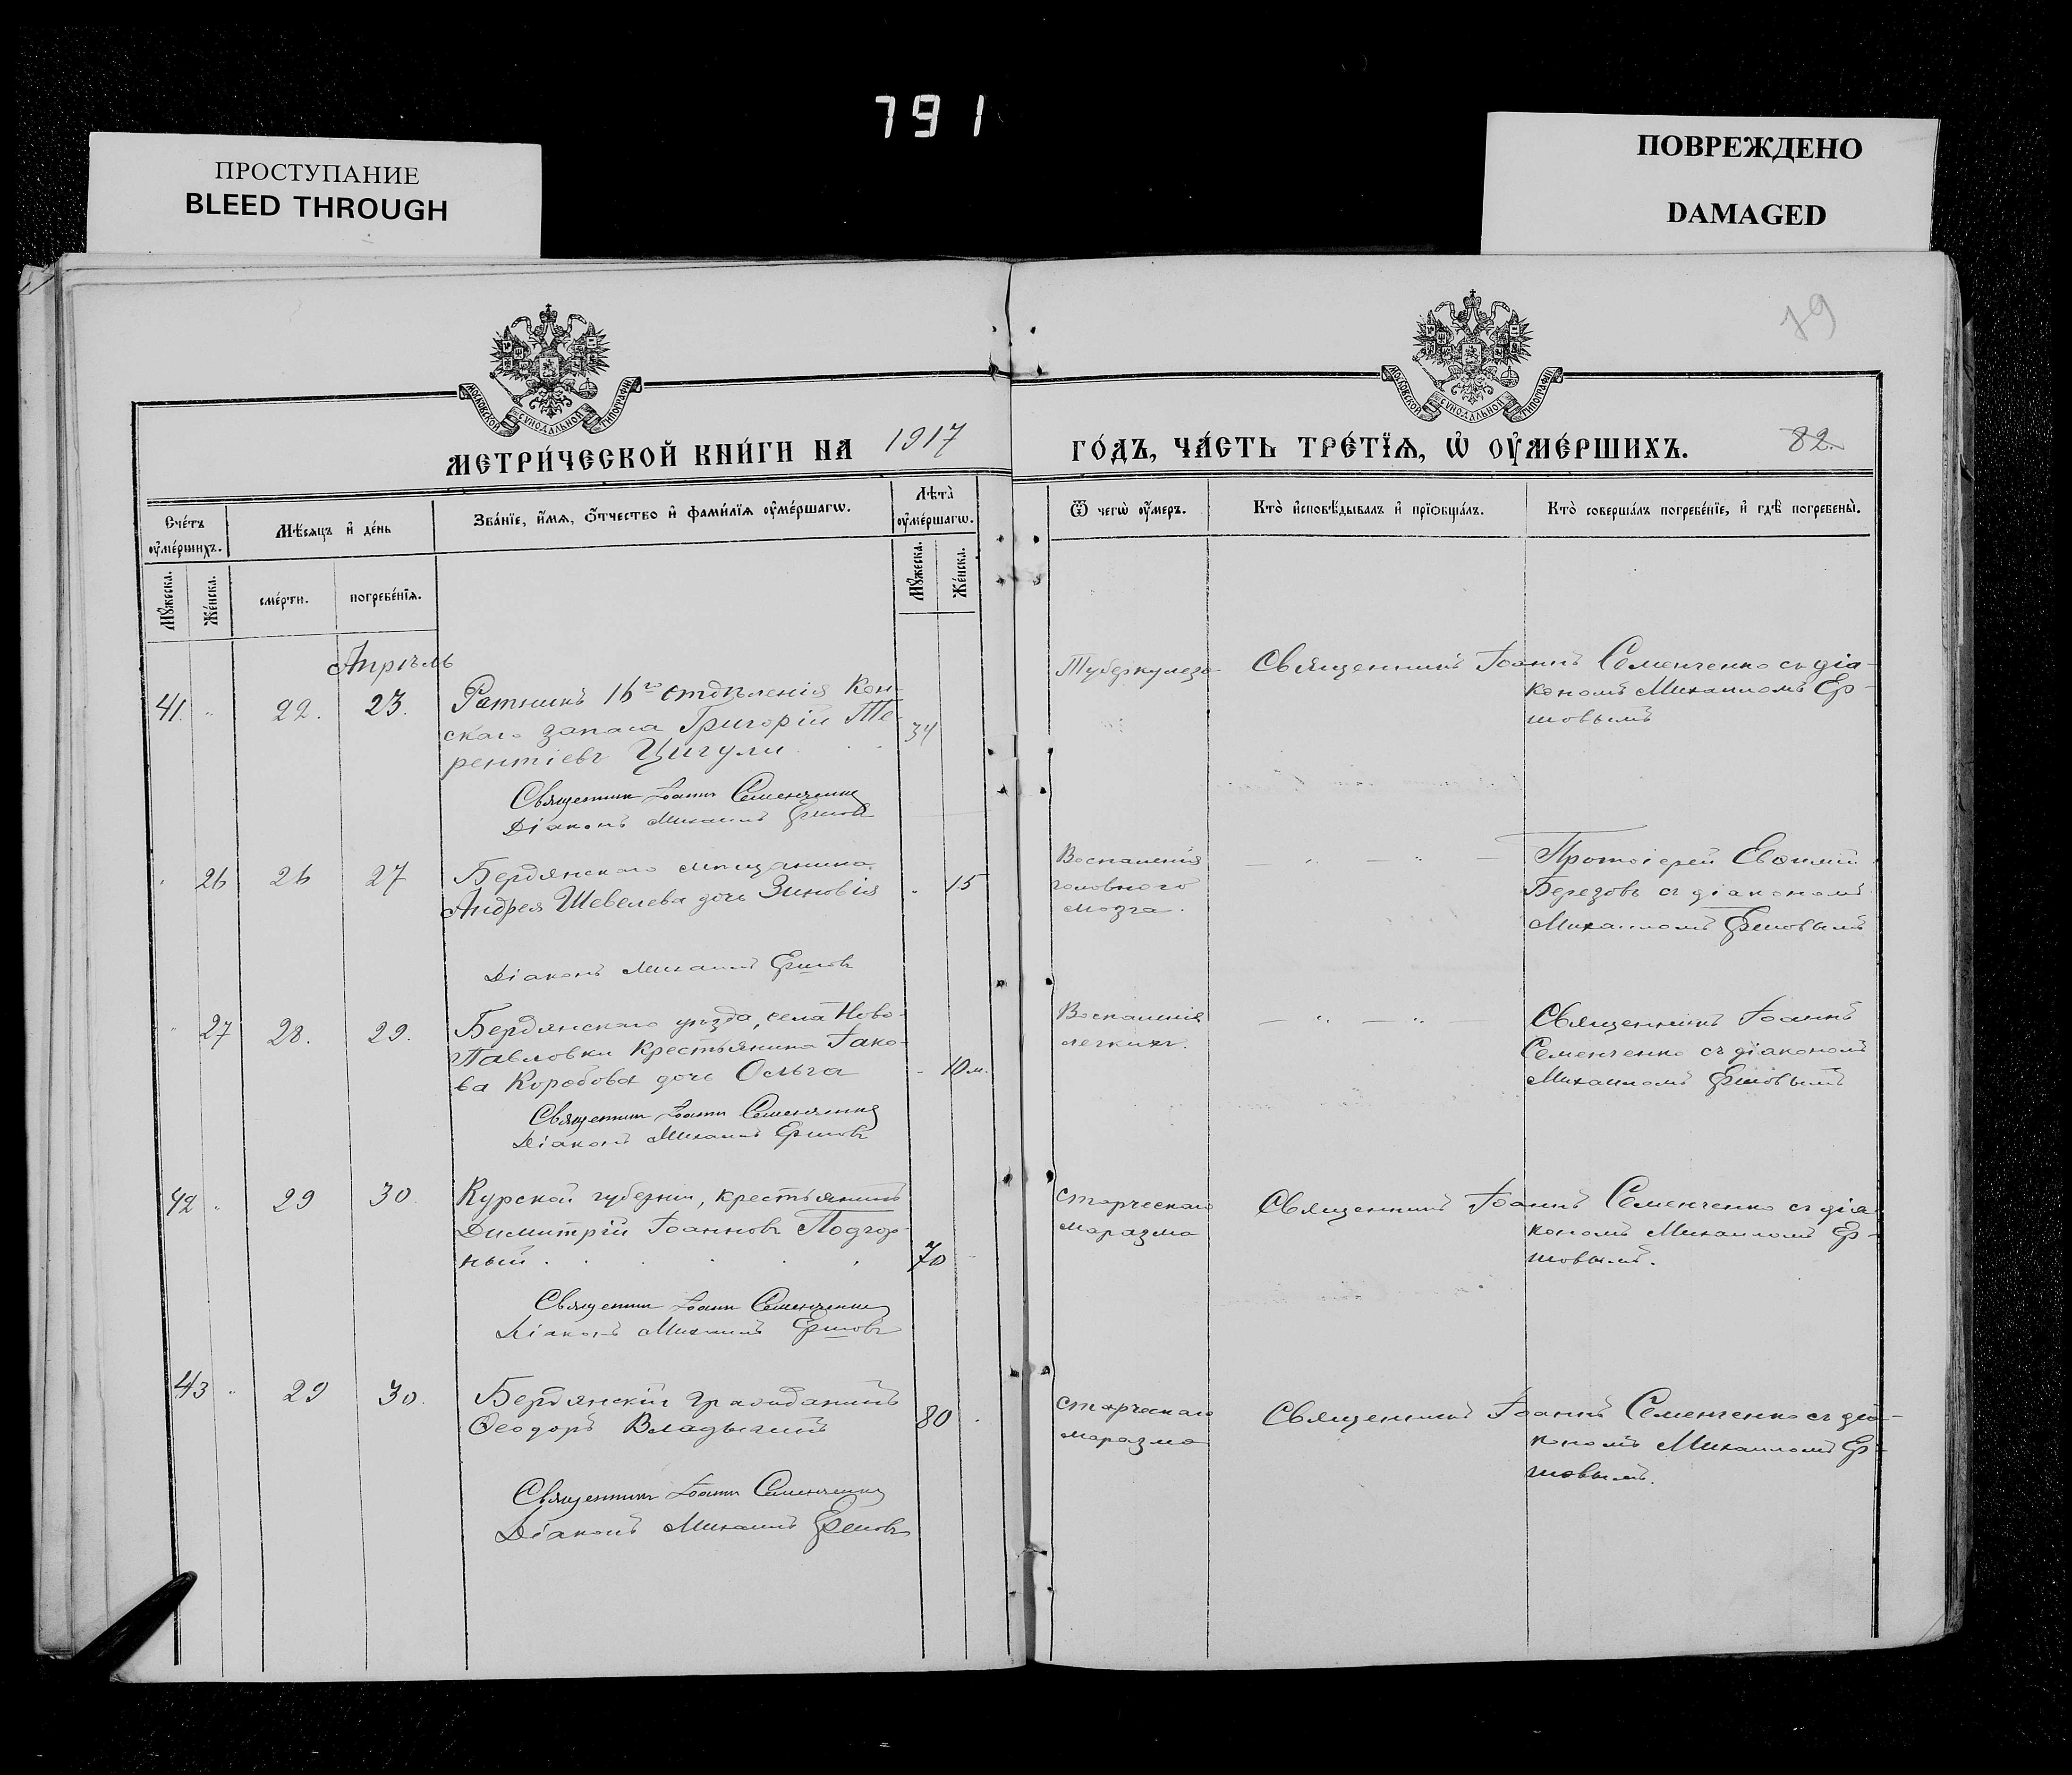 791
ПРОСТУПАНИЕ
BLEED THROUGH
ПОВРЕЖДЕНО
DAMAGED
79
МОСКОВСКОЙ СѴНОДАЛЬНОЙ ТИПОГРАФІИ
МОСКОВСКОЙ СѴНОДАЛЬНОЙ ТИПОГРАФІИ
МЕТРИ́ЧЕСКОЙ КНИ́ГИ НА 1917
ГО́ДЪ, ЧА́СТЬ ТРЕ́ТЇѦ, Ѡ҆ ОУ҆МЕ́РШИХЪ.
82.
Сче́тъ оу҆ме́ршихъ.
Мѣ́сѧцъ и҆ де́нь
Зва́нїе, и҆́мѧ, ѻ҆́тчество и҆ фами́лїѧ оу҆ме́ршагѡ.
Лѣ́та̀ оу҆ме́ршагѡ.
Мꙋ́жеска.
Же́нска.
сме́рти.
погребе́нїѧ.
Мꙋ́жеска.
Же́нска.
Ѿ чегѡ̀ оу҆́меръ.
Кто̀ и҆сповѣ́дывалъ и҆ прїѻбща́лъ.
Кто̀ соверша́лъ погребе́нїе, и҆ гдѣ̀ погребены̀.
Апрѣль
41. " 22. 23. Ратникъ 16го отдѣленія Кон-
скаго запаса Григорій Те-
рентіевъ Цигули 34
Священник Іоанн Семенченко
Діаконъ Михаилъ Ершовъ
Туберкулеза
Священникъ Іоаннъ Семенченко съ діа-
кономъ Михаиломъ Ер-
шовымъ
" 26 26 27 Бердянскаго мѣщанина
Андрея Шевелева дочь Зиновія " 15
Діаконъ Михаилъ Ершовъ
Воспаленія
головного
мозга.
— " — " —
Протоіерей Евѳимій
Березовъ съ діакономъ
Михаиломъ Ершовымъ
" 27 28. 29. Бердянскаго уѣзда, села Ново-
Павловки крестьянина Іако-
ва Коробова дочь Ольга - 10 м.
Священник Іоанн Семенченко
Діаконъ Михаилъ Ершовъ
Воспаленія
легкихъ.
— " — " —
Священникъ Іоаннъ
Семенченко съ діакономъ
Михаиломъ Ершовымъ
42 " 29 30 Курской губерніи, крестьянинъ
Димитрій Іоанновъ Подгор-
ный 70
Священник Іоанн Семенченко
Діаконъ Михаилъ Ершовъ
Старческаго
маразма
Священникъ Іоаннъ Семенченко съ діа-
кономъ Михаиломъ Ер-
шовымъ.
43 " 29 30. Бердянскій гражданинъ
Ѳеодоръ 80
Священник Іоанн Семенченко
Діаконъ Михаилъ Ершовъ
Старческаго
маразма
Священникъ Іоаннъ Семенченко съ діа-
кономъ Михаиломъ Ер-
шовымъ.